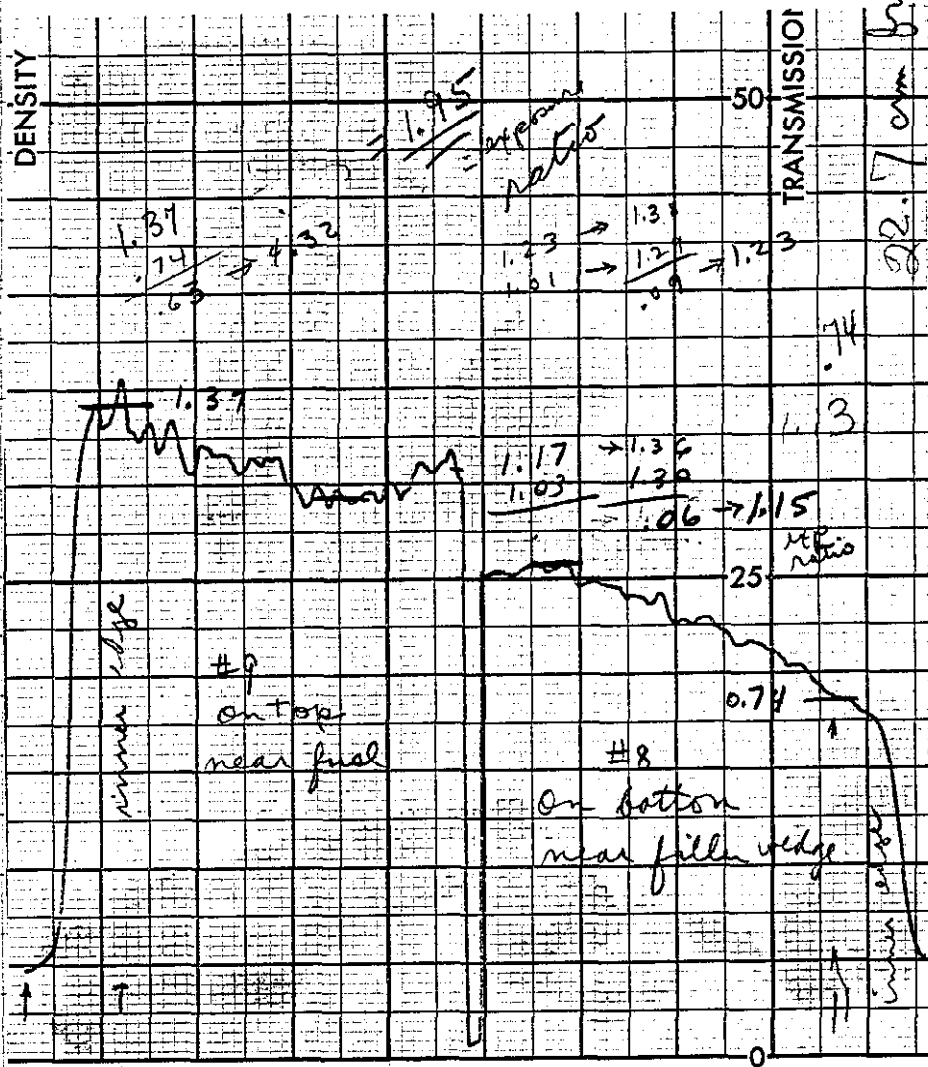 DENSITY
50
TRANSMISSION
22.7 cm
= 1.95
= exposure
ratio
1.37
.74
.63
→ 4.32
1.23 →
1.01 → 1.2
.09
→ 1.23
.74
1.13
1.37
1.17 → 1.36
1.03 1.30
.06 → 1.15
ratio
25
inner edge
#9
on top
near fuel
0.74
#8
On bottom
near filler wedge
inner edge
0